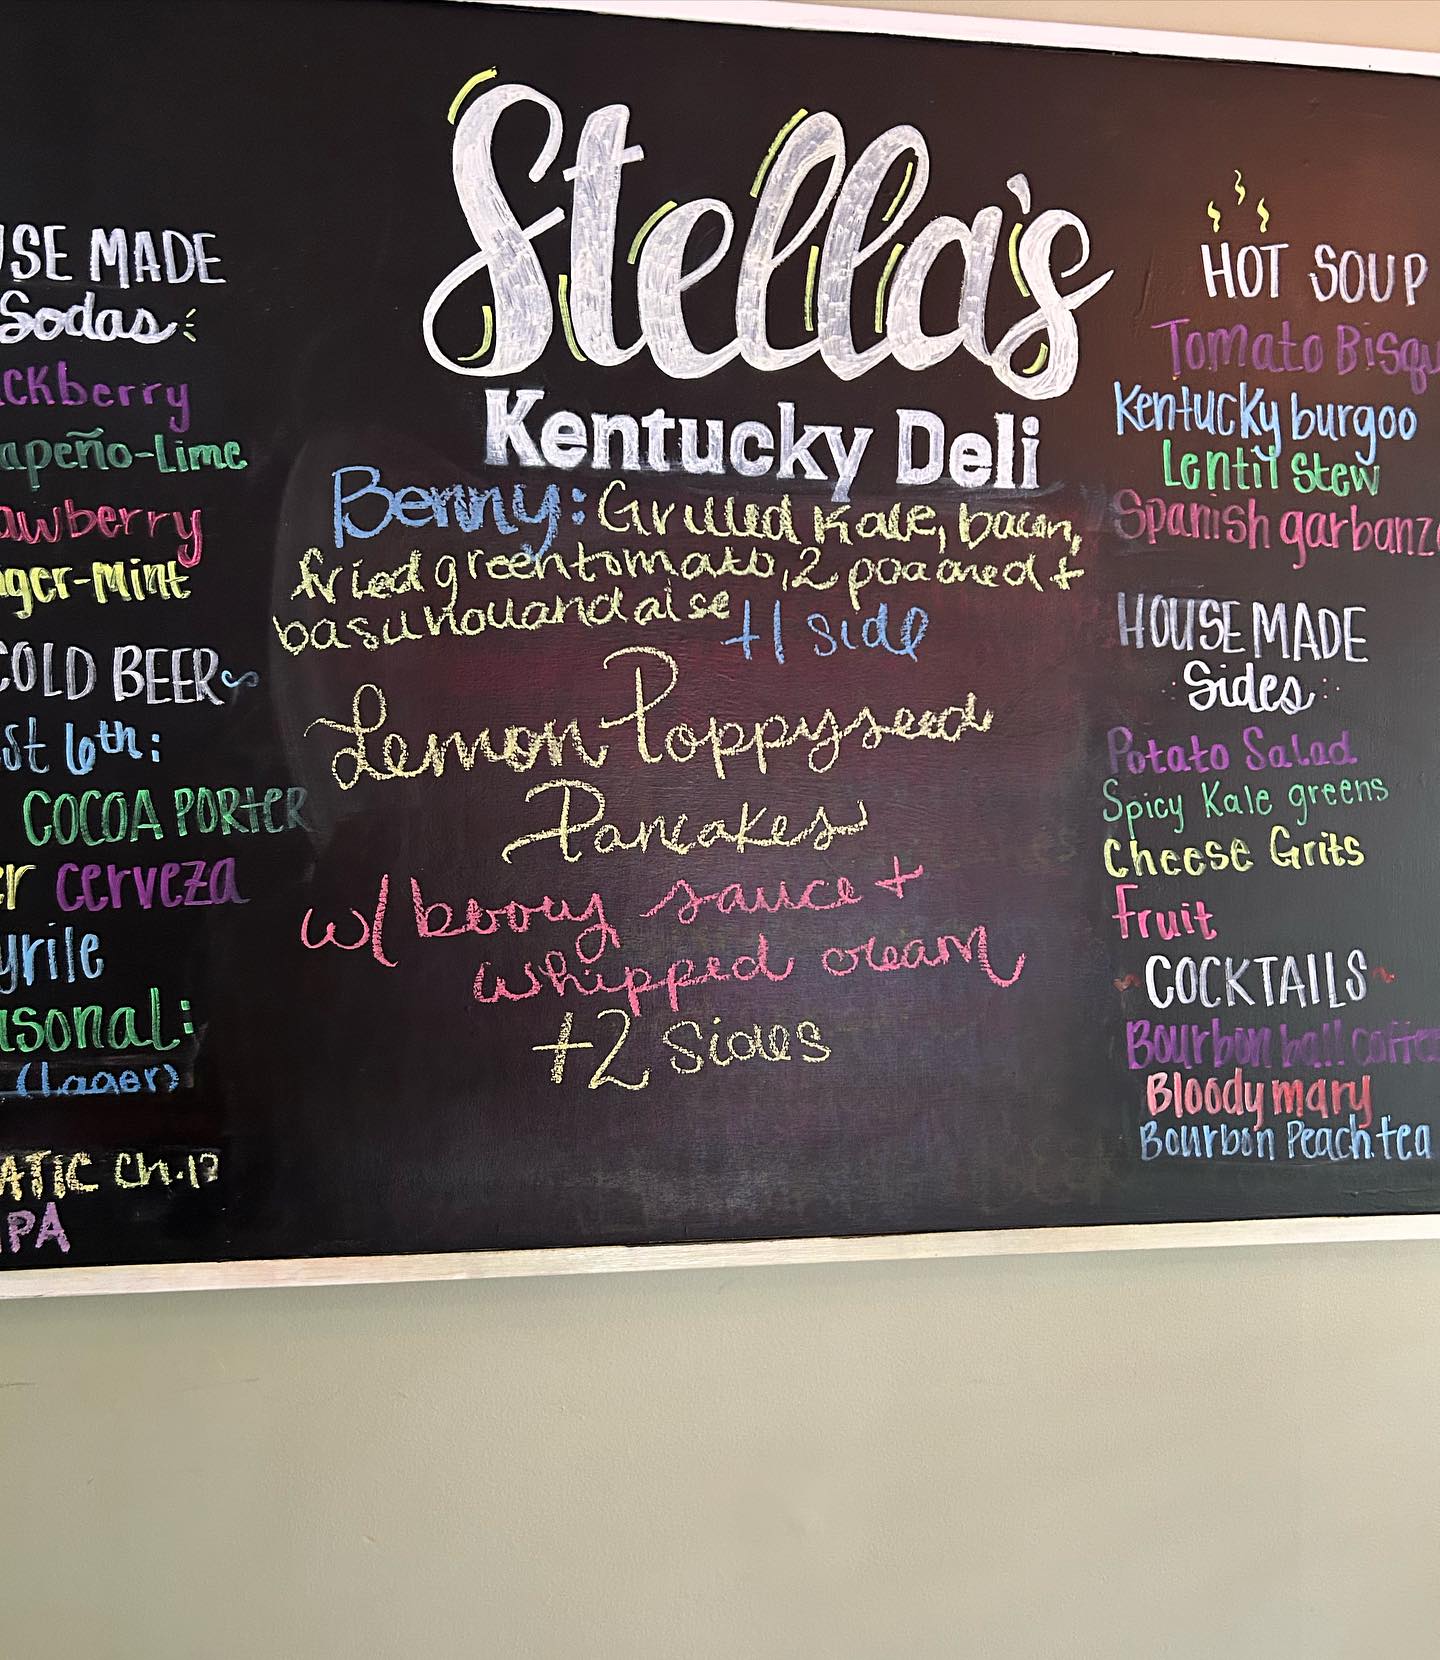 Stella's
Kentucky Deli
USE MADE
Sodas
ckberry
apeño-Lime
awberry
ger-Mint
COLD BEER
st 6th:
COCOA PORTER
er cerveza
yrile
asonal:
(Lager)
ATIC Ch.17
IPA
Benny: Grilled Kale, bacon,
fried green tomato, 2 poached +
basil hollandaise
+1 side
Lemon Poppyseed
Pancakes
w/ berry sauce +
whipped cream
+2 sides
HOT SOUP
Tomato Bisqu
Kentucky burgoo
Lentil Stew
Spanish garbanzo
HOUSE MADE
Sides
Potato Salad
Spicy Kale greens
Cheese Grits
Fruit
COCKTAILS
Bourbon ball coffee
Bloody mary
Bourbon Peach tea